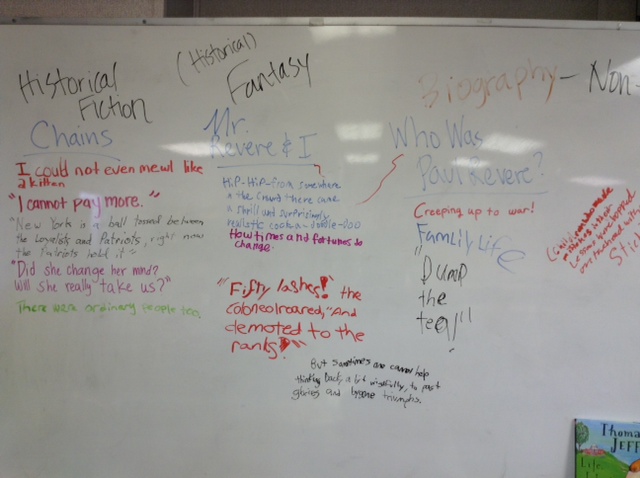 Historical
Fiction
Chains
I could not even mewl like
a kitten
"I cannot pay more."
"New York is a ball tossed between
the Loyalists and Patriots, right now
the Patriots hold it"
"Did she change her mind?
Will she really take us?"
There were ordinary people too.
(Historical)
Fantasy
Mr.
Revere & I
Hip-Hip-from somewhere
in the crowd there came
a shrill and surprisingly
realistic cock-a-doodle-doo
How times and fortunes do
change.
"Fifty lashes!" the
colonel roared, "And
demoted to the
ranks!"
But sometimes one cannot help
thinking back, a bit wistfully, to past
glories and bygone triumphs.
Biography - Non-
Who Was
Paul Revere?
Creeping up to war!
Family Life
"Dump
the
tea!"
made
Thoma
JEFF
Life